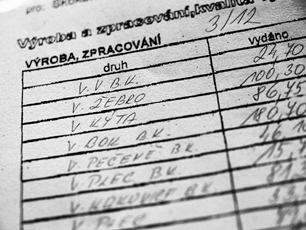 pro:
Výroba a zpracování, kvalita
3/12
VÝROBA, ZPRACOVÁNÍ
druh vydáno
V. V B.K. 24,40
V. ŽEBRO 100,30
V. KÝTA 86,45
V. BOK B.K. 180,4
V. PEČENĚ B.K.
V. PLEC B.K. 15,4
V. KRKOVICE B.K.
V. PLEC